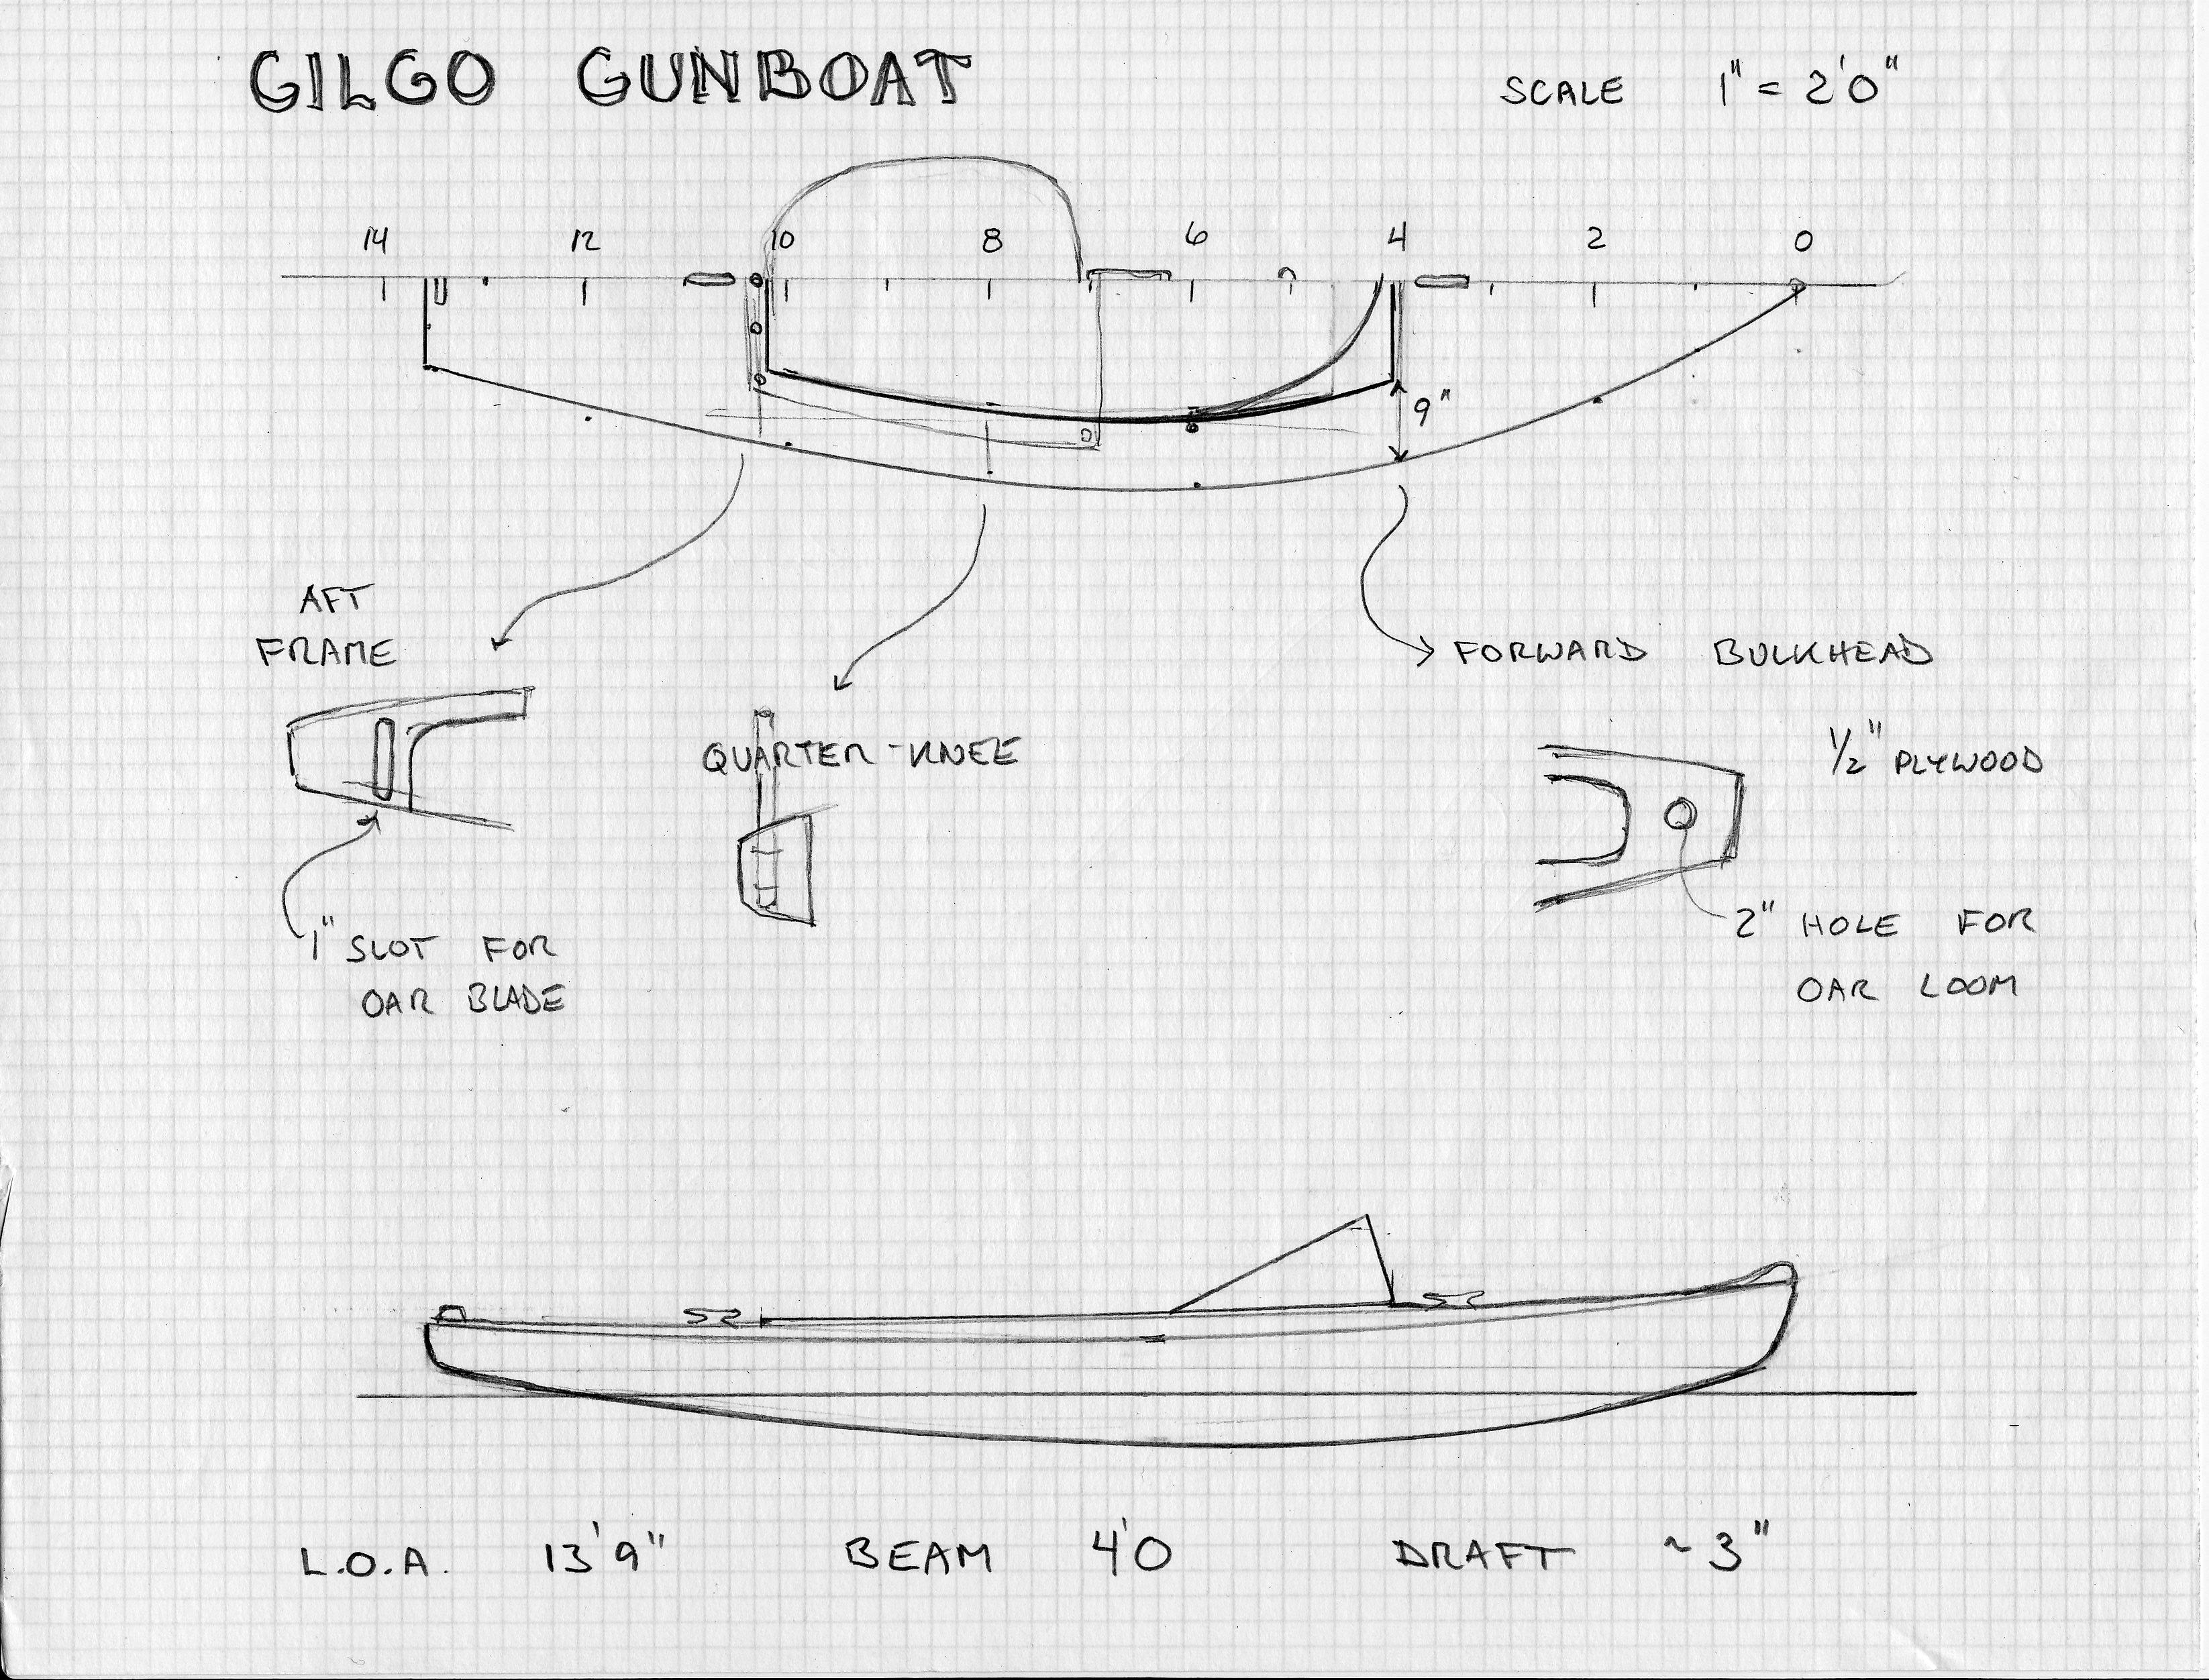 GILGO GUNBOAT
SCALE 1" = 2'0"
14 12 10 8 6 4 2 0
9"
AFT
FRAME
QUARTER-KNEE
FORWARD BULKHEAD
1/2" PLYWOOD
1" SLOT FOR
OAR BLADE
2" HOLE FOR
OAR LOOM
L.O.A. 13'9" BEAM 4'0 DRAFT ~3"